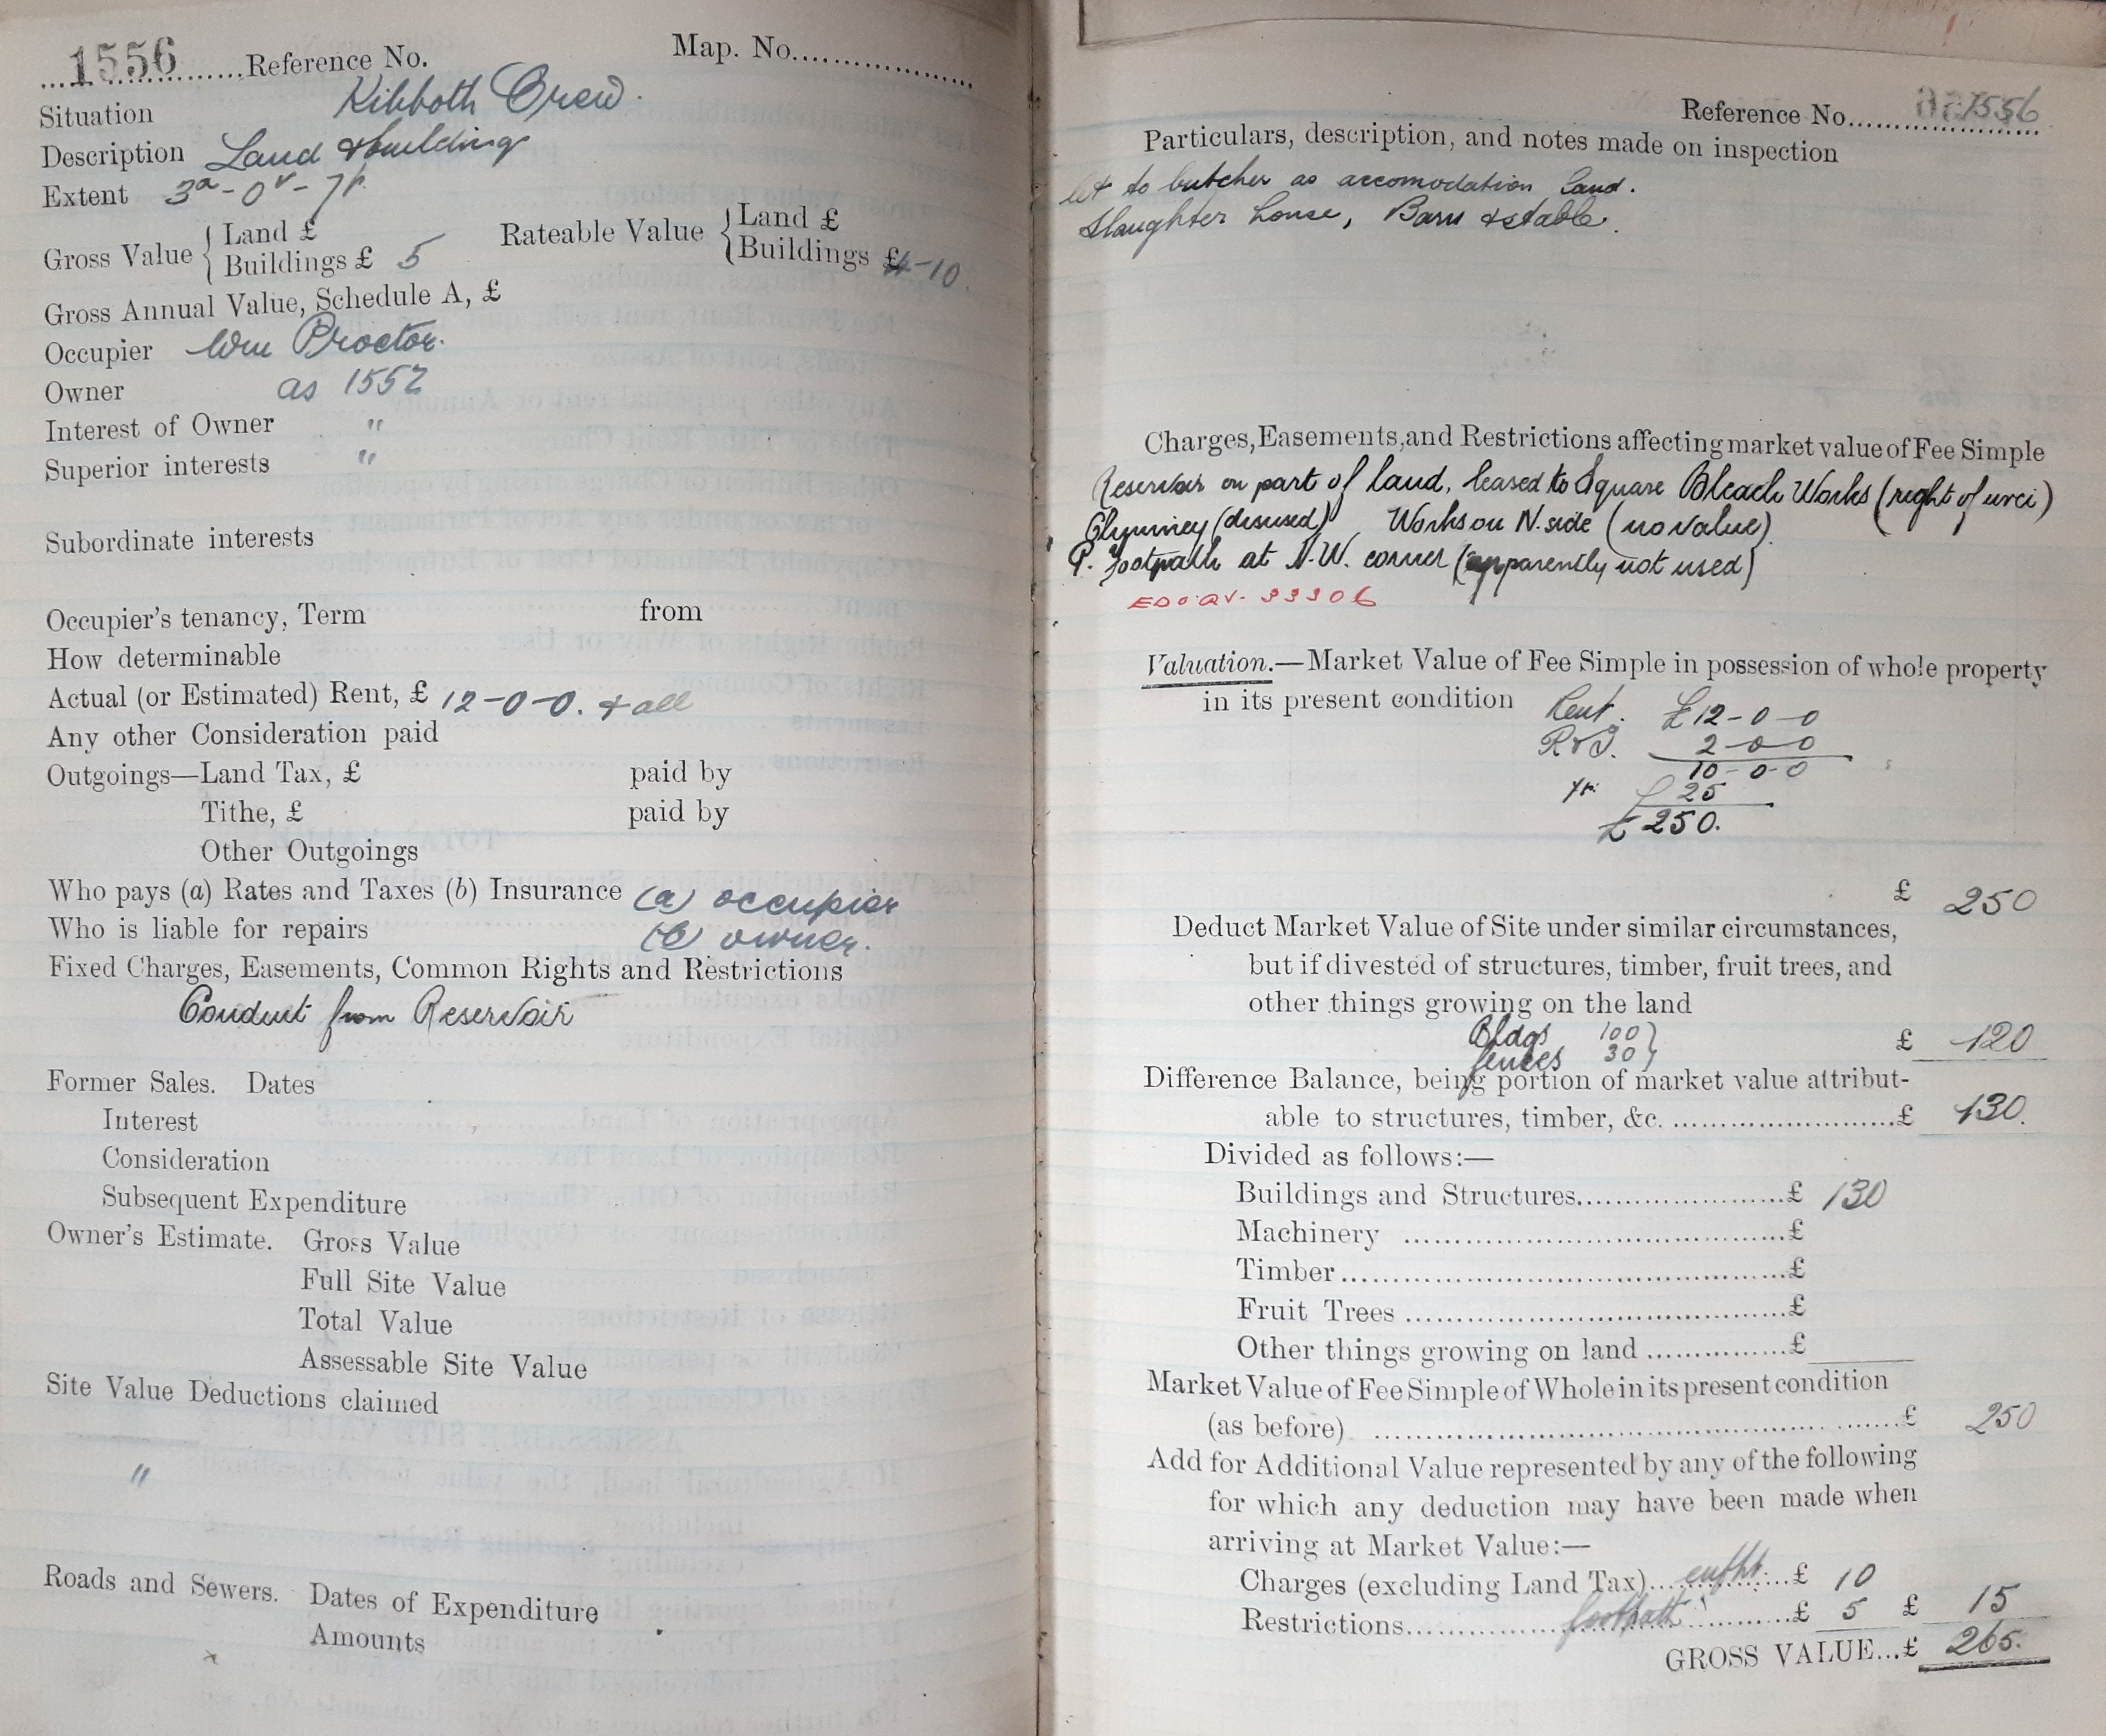 1556 Reference No. Map. No.
Situation Kibboth Crew.
Description Land & building
Extent 3a - 0r - 7p.
Gross Value { Land £
Buildings £ 5
Rateable Value { Land £
Buildings £ 4-10.
Gross Annual Value, Schedule A, £
Occupier Wm Proctor.
Owner as 1552
Interest of Owner "
Superior interests "
Subordinate interests
Occupier's tenancy, Term from
How determinable
Actual (or Estimated) Rent, £ 12-0-0. & all
Any other Consideration paid
Outgoings—Land Tax, £ paid by
Tithe, £ paid by
Other Outgoings
Who pays (a) Rates and Taxes (b) Insurance (a) occupier
Who is liable for repairs (b) owner.
Fixed Charges, Easements, Common Rights and Restrictions
Conduit from Reservoir
Former Sales. Dates
Interest
Consideration
Subsequent Expenditure
Owner's Estimate. Gross Value
Full Site Value
Total Value
Assessable Site Value
Site Value Deductions claimed
"
Roads and Sewers. Dates of Expenditure
Amounts
Reference No. 1556
Particulars, description, and notes made on inspection
let to butcher as accomodation land.
Slaughter house, Barn & stable.
Charges, Easements, and Restrictions affecting market value of Fee Simple
Reservoir on part of land, leased to Square Bleach Works (right of
(disused) Works on N. side (no value)
P. Footpath at N.W. corner (apparently not used)
33306
Valuation.—Market Value of Fee Simple in possession of whole property
in its present condition
Rent. £12-0-0
2-0-0
10-0-0
25
£250.
£ 250
Deduct Market Value of Site under similar circumstances,
but if divested of structures, timber, fruit trees, and
other things growing on the land
Bldgs 100 }
fences 30 }
£ 120
Difference Balance, being portion of market value attribut-
able to structures, timber, &c. £ 130.
Divided as follows:—
Buildings and Structures £ 130
Machinery £
Timber £
Fruit Trees £
Other things growing on land £
Market Value of Fee Simple of Whole in its present condition
(as before) £ 250
Add for Additional Value represented by any of the following
for which any deduction may have been made when
arriving at Market Value:—
Charges (excluding Land Tax) £ 10
Restrictions footpath £ 5 £ 15
GROSS VALUE...£ 265.